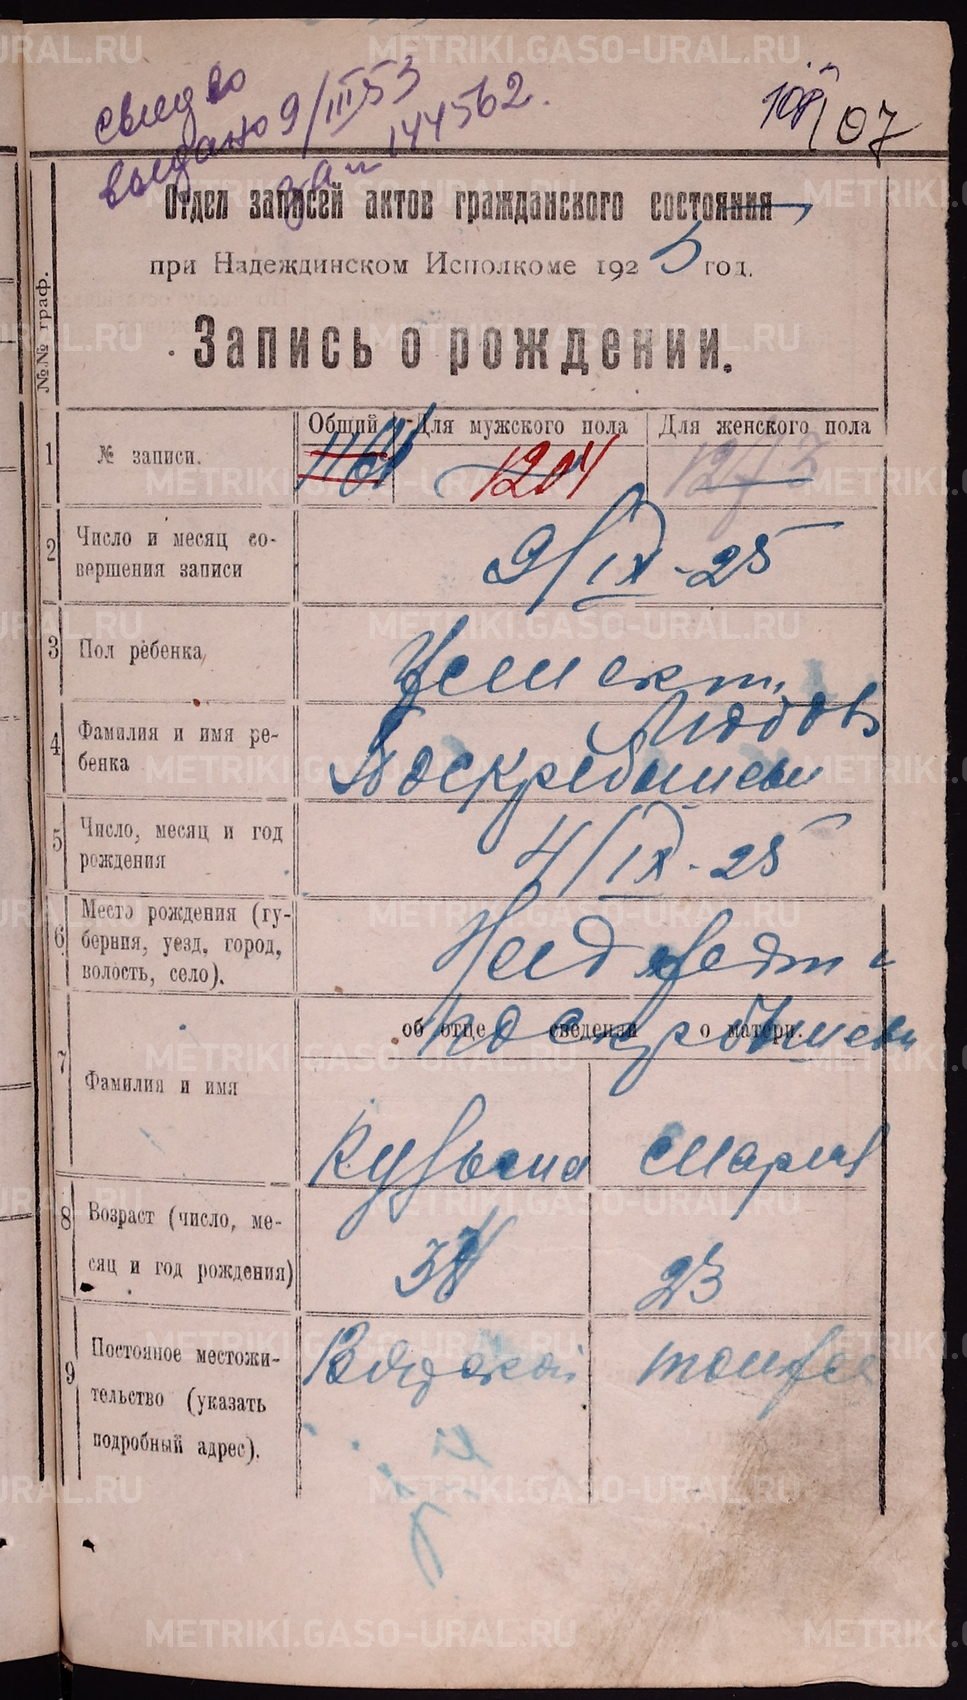 свид во
выдано 9/III 53
за № 144562.
107
Отдел записей актов гражданского состояния
при Надеждинском Исполкоме 1925 год.
Запись о рождении.
№№ граф.
Общий Для мужского пола Для женского пола
1 № записи. 1204
2 Число и месяц со-
вершения записи
9/IX - 25
3 Пол ребенка
Женск.
4 Фамилия и имя ре-
бенка
Любовь
Поскребышева
5 Число, месяц и год
рождения
4/IX - 25
6 Место рождения (гу-
берния, уезд, город,
волость, село).
об отце сведения о матери.
Поскребышевы
7 Фамилия и имя
Кузьма Мария
8 Возраст (число, ме-
сяц и год рождения)
23
9 Постоянное местожи-
тельство (указать
подробный адрес).
Вятской
тоже
METRIKI.GASO-URAL.RU